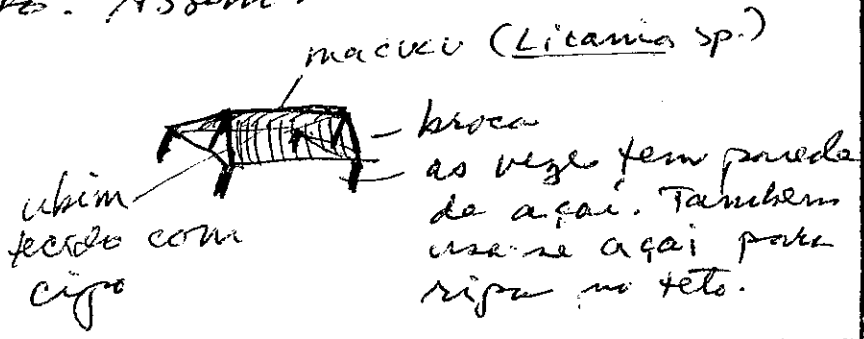 to. Assim
macucu (Licania sp.)
broca
as vezes tem parede
de açaí. Tambem
usa-se açaí para
ripa no teto.
ubim
tecido com
cipo